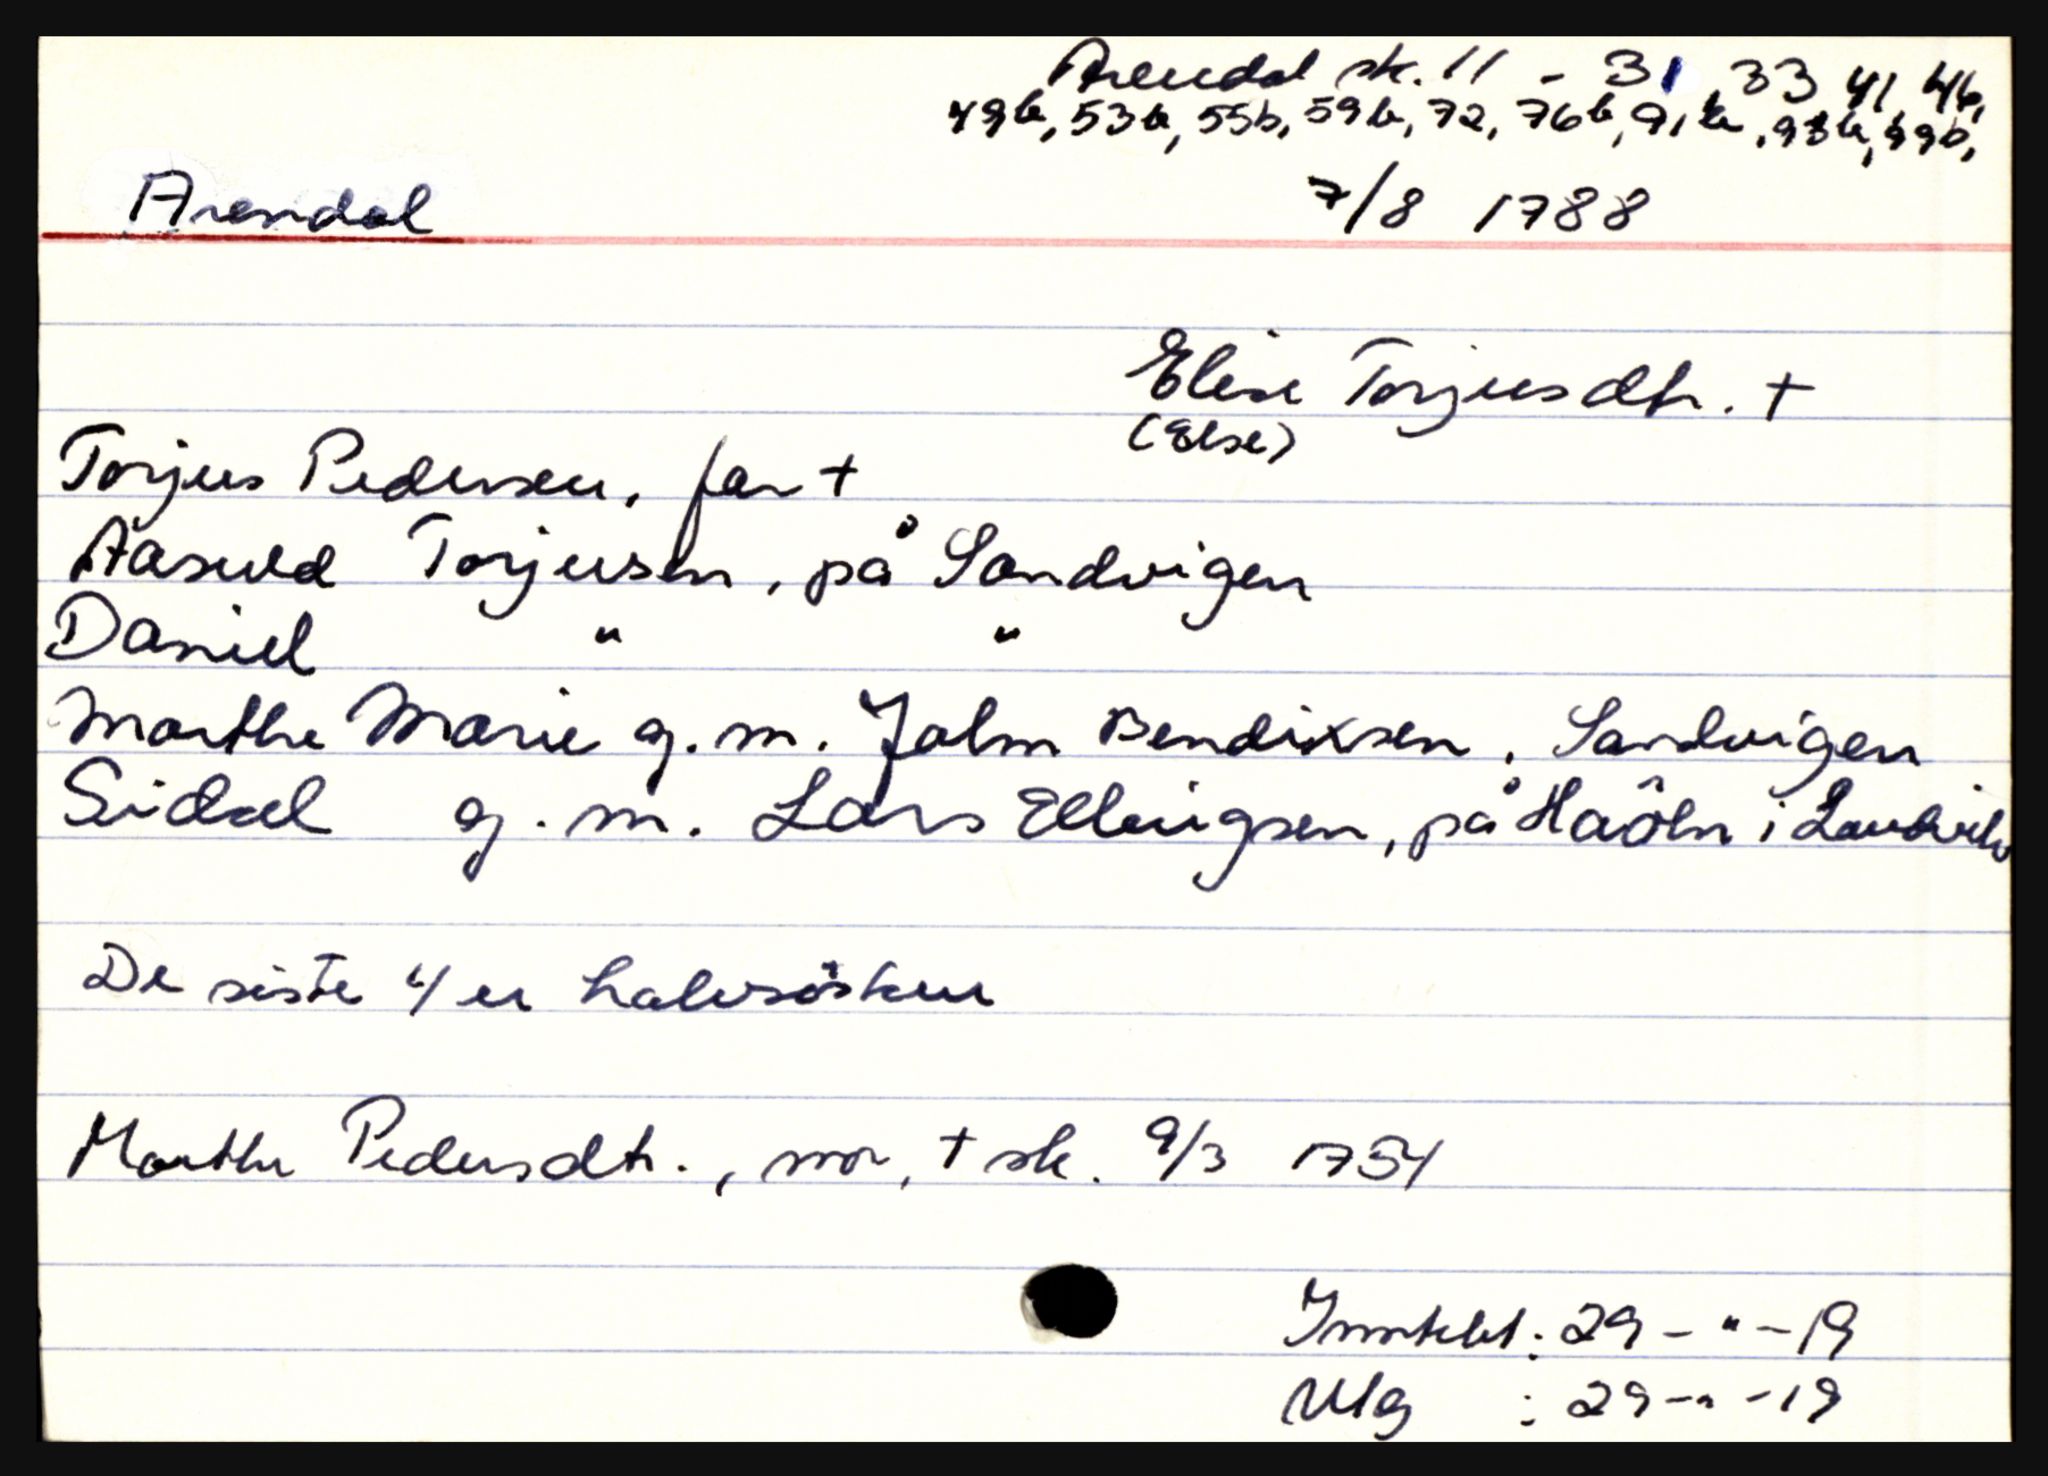 Arendal sk. 11 - 31, 33 41, 46,
49b, 53b, 55b, 59b, 72, 76b, 91b, 93b, 99b,
Arendal
7/8 1788
Elise Torjusdtr. +
(Else)
Torjus Pedersen, far +
Aasuld Torjusen, på Sandvigen
Daniel " "
Marthe Marie g. m. John Bendixsen, Sandvigen
Sidsel g. m. Lars Ellingsen, på i Landvik
De siste 4 er halvsösken
Marthe Pedersdtr., mor, + sk. 9/3 1754
Inntekt: 29 - " - 19
Utg : 29 - " - 19